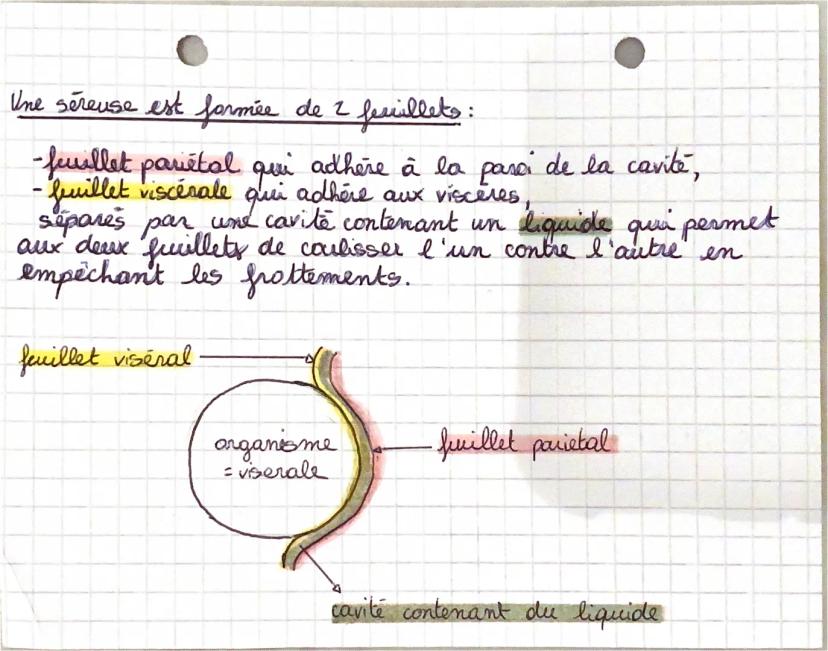 Une séreuse est formée de 2 feuillets :
- feuillet pariétal qui adhère à la paroi de la cavité,
- feuillet viscérale qui adhère aux viscères,
séparés par une cavité contenant un liquide qui permet
aux deux feuillets de coulisser l'un contre l'autre en
empêchant les frottements.
feuillet viséral
organisme
= viserale
feuillet pariétal
cavité contenant du liquide